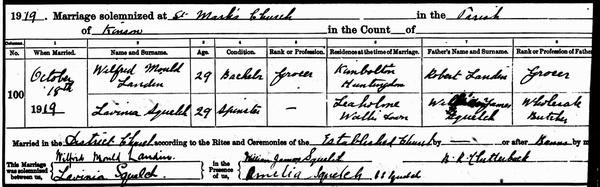 1919. Marriage solemnized at St Mark's Church in the Parish
of Kinson in the Count of
Columns. 1 2 3 4 5 6 7 8
No. When Married. Name and Surname. Age. Condition. Rank or Profession. Residence at the time of Marriage. Father's Name and Surname. Rank or Profession of Father
100 October 18th 1919 Wilfred Mould Landin 29 Bachelor Grocer Kimbolton Huntingdon Robert Landin Grocer
Lavinia Squelch 29 Spinster — Leaholme Wallis Down William James Squelch Wholesale Butcher
Married in the District Church according to the Rites and Ceremonies of the Established Church by — or after Banns by me,
This Marriage was solemnized between us, Wilfred Mould Landin. Lavinia Squelch in the Presence of us, William James Squelch Amelia Squelch Squelch